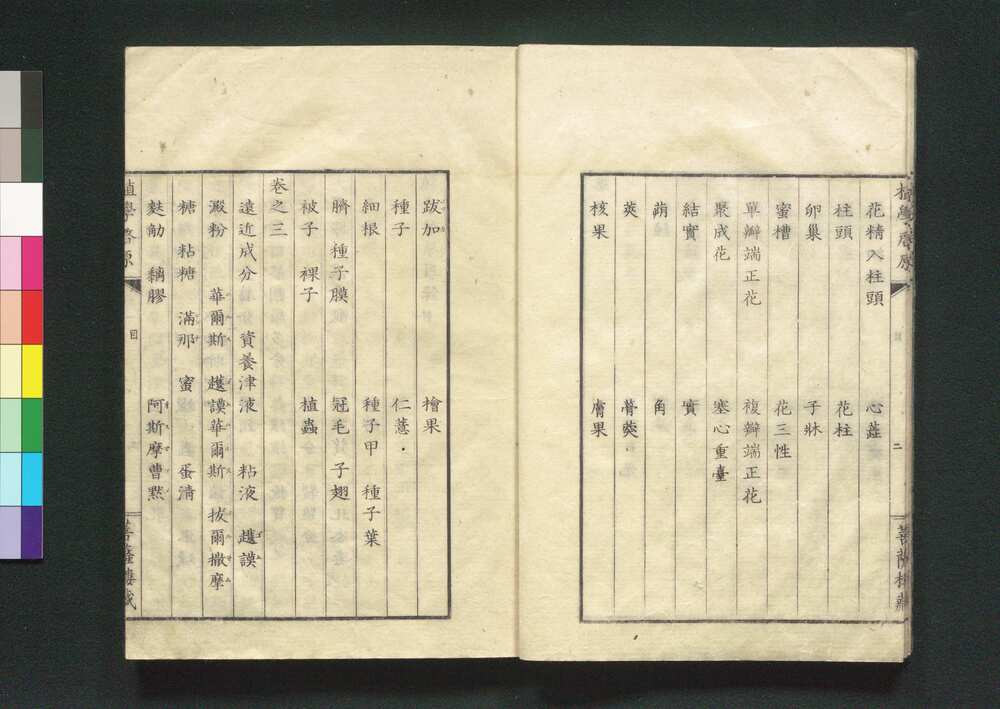 植學啓原
二
菩薩樓藏
花精入柱頭 心蕋
柱頭 花柱
卵巢 子牀
蜜槽 花三性
單瓣端正花 複瓣端正花
聚成花 塞心重臺
結實 實
蒴 角
莢 膏莢
核果 膚果
跋加 檜果
種子 仁薏
細根 種子甲 種子葉
臍 種子膜 冠毛 子翅
被子 裸子 植蟲
卷之三
遠近成分 資養津液 粘液 護謨
澱粉 華爾斯 護謨華爾斯 拔爾撒摩
糖 粘糖 滿那 蜜 蛋清
麩觔 黐膠 阿斯摩曹㸃
植學啓原
目
菩薩樓藏